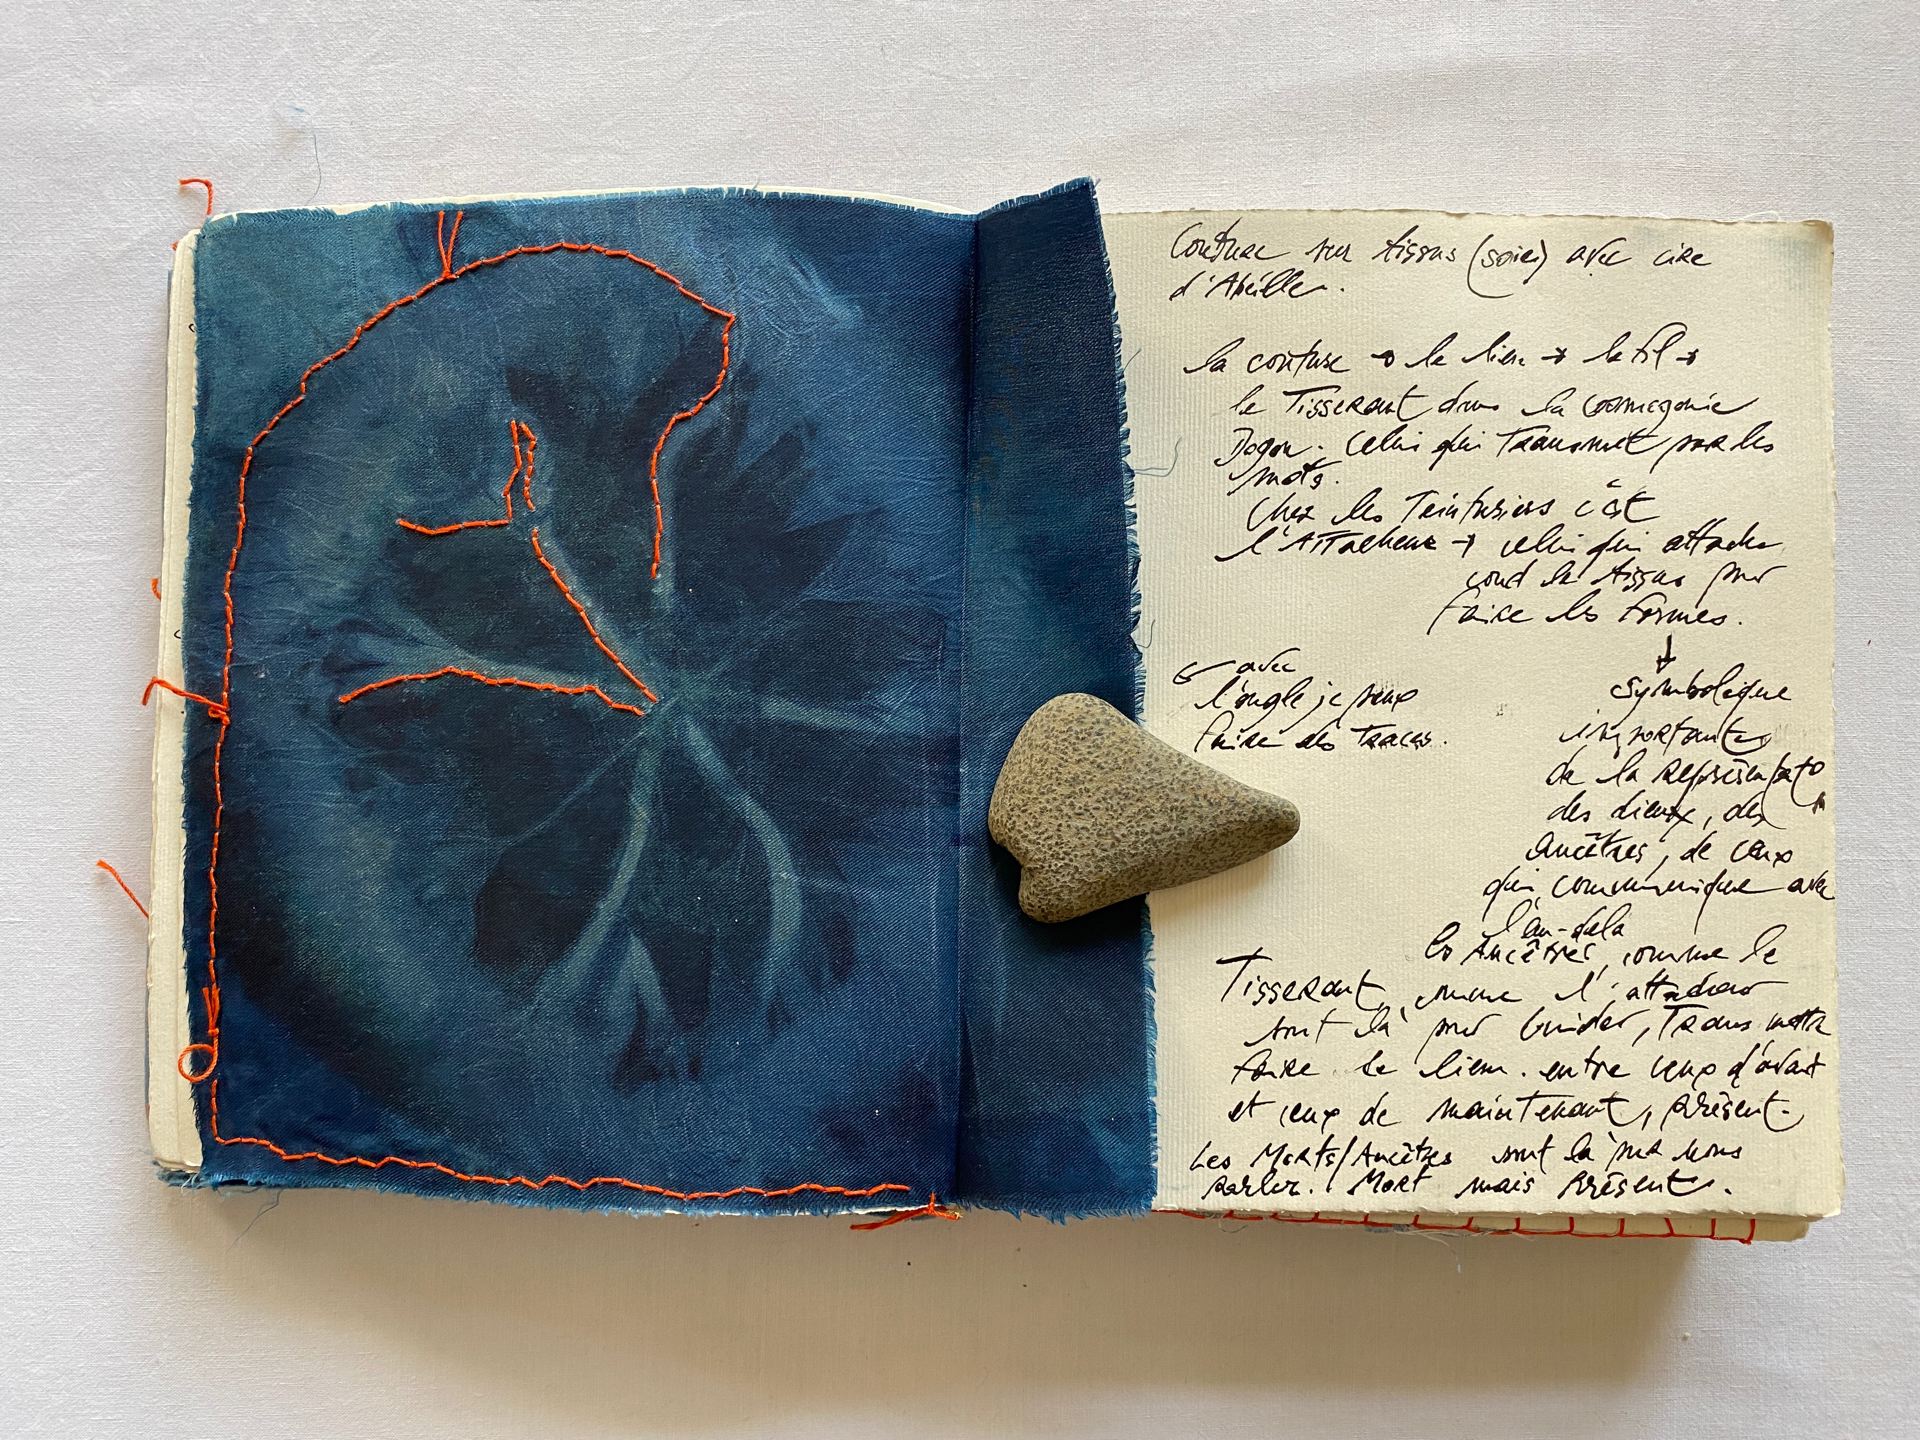 Couture sur tissus (soie) avec cire
d'Abeille.
la couture → le lien → le fil →
le Tisserant dans la cosmogonie
Dogon. celui qui Transmet par les
mots.
Chez les Teinturiers c'est
l'Attacheur → celui qui attache
coud le tissus pour
faire les formes.
↓
avec
l'ongle je peux
faire des Traces.
symbolique
importante
de la représentato
des dieux, des
Ancêtres, de ceux
qui communique avec
l'au-dela
les Ancêtres, comme le
Tisserant, comme l'attacheur
sont là pour Guider, Transmettre
faire le lien entre ceux d'avant
et ceux de maintenant, présent.
Les Morts/Ancêtres sont là pour nous
parler. Mort mais présent.